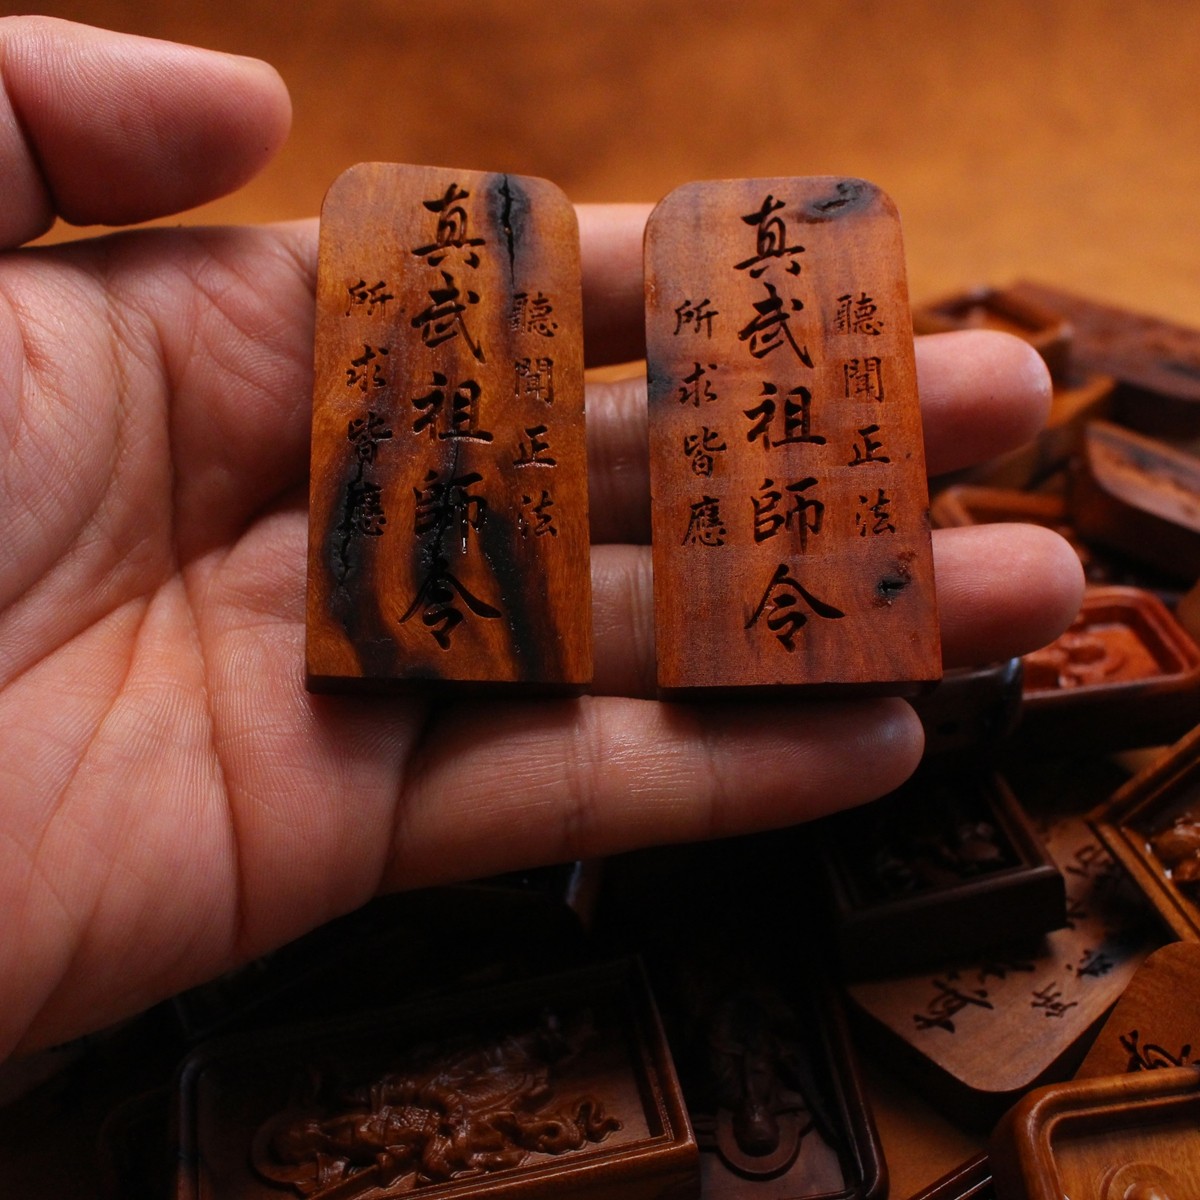 聽聞正法
真武祖師令
所求皆應
聽聞正法
真武祖師令
所求皆應